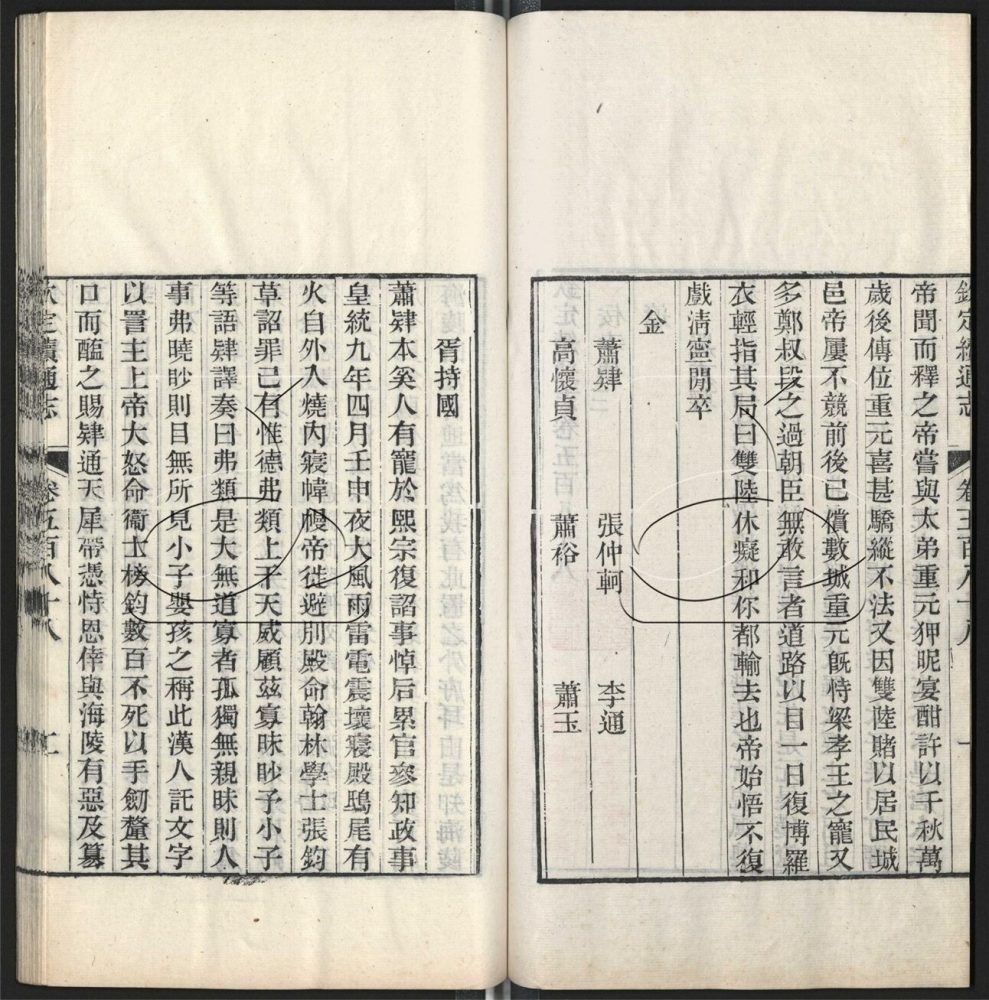 欽定續通志 卷五百八十八 一
帝聞而釋之帝嘗與太弟重元狎昵宴酣許以千秋萬
歲後傳位重元喜甚驕縱不法又因雙陸賭以居民城
邑帝屢不競前後已償數城重元既恃梁孝王之寵又
多鄭叔段之過朝臣無敢言者道路以目一日復博羅
衣輕指其局曰雙陸休癡和你都輸去也帝始悟不復
戲清寧閒卒
金
蕭肄 張仲軻 李通
高懷貞 蕭裕 蕭玉
胥持國
蕭肄本奚人有寵於熙宗復諂事悼后累官參知政事
皇統九年四月壬申夜大風雨雷電震壞寢殿鴟尾有
火自外入燒內寢幃幔帝徙避別殿命翰林學士張鈞
草詔罪己有惟德弗類上干天威顧茲寡昧眇予小子
等語肄譯奏曰弗類是大無道寡者孤獨無親昧則人
事弗曉眇則目無所見小子嬰孩之稱此漢人託文字
以詈主上帝大怒命衞士榜鈞數百不死以手劒剺其
口而醢之賜肄通天犀帶憑恃恩倖與海陵有惡及篡
欽定續通志 卷五百八十八 二